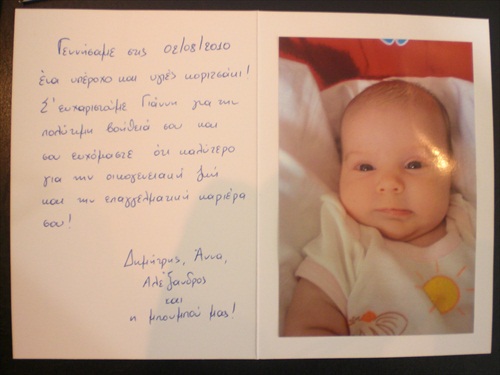 Γεννήσαμε στις 02/08/2010
ένα υπέροχο και υγιές κοριτσάκι!
Σ' ευχαριστούμε Γιάννη για την
πολύτιμη βοήθειά σου και
σου ευχόμαστε ότι καλύτερο
για την οικογενειακή ζωή
και την επαγγελματική καριέρα
σου!
Δημήτρης, Άννα,
Αλέξανδρος
και
η μπουμπού μας!